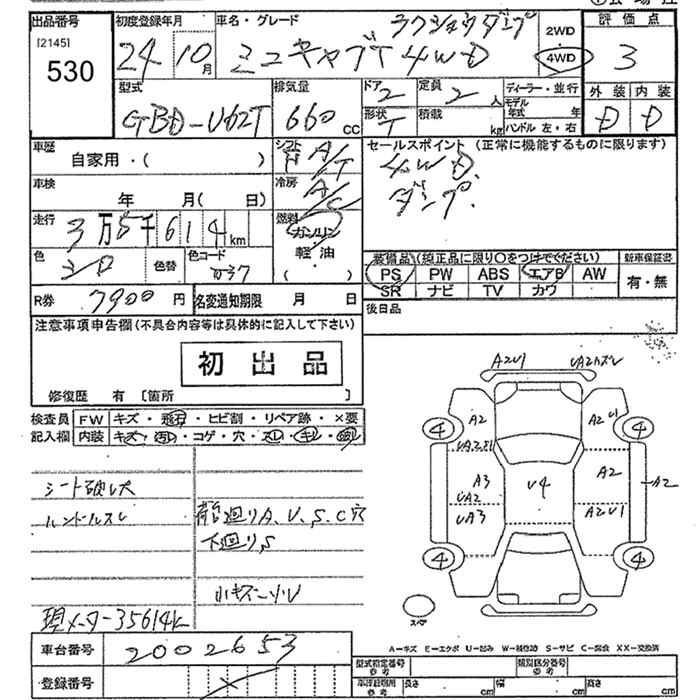 出品番号
[2145]
530
初度登録年月
24 10月
車名・グレード
ラクショウダンプ
ミニキャブT 4WD
2WD
4WD
評価点
3
外装 内装
D D
型式
GBD-U62T
排気量
660 cc
ドア 2
形状 T
定員 2 人
積載 kg
ディーラー・並行
モデル年式 年
ハンドル 左・右
車歴 自家用・( )
シフト F A/T
冷房 A/C
燃料 ガソリン
軽油
( )
セールスポイント (正常に機能するものに限ります)
4WD.
ダンプ.
車検 年 月( 日)
走行 3万5千614km
色 シロ
色替
色コード W37
装備品(純正品に限り〇をつけてください)
PS PW ABS エアB AW
SR ナビ TV カワ
新車保証書
有・無
R券 7900円
名変通知期限 月 日
後日品
注意事項申告欄(不具合内容等は具体的に記入して下さい)
初出品
修復歴 有 [箇所 ]
検査員記入欄
FW キズ・飛石・ヒビ割・リペア跡・×要
内装 キズ・汚れ・コゲ・穴・スレ・キレ
シート破レ大
ハンドルスレ
荷台廻りA、U、S、C穴
下廻りS
小キズ
現メーター35614k
A2U1
A2
A2
A2U1
A3
UA2
UA3
U4
A2
A2U1
A2
4
4
4
4
スペア
A=キズ E=エクボ U=凹み W=補修跡 S=サビ C=腐食 XX=交換済
車台番号 2002653
登録番号
型式指定番号 参考
類別区分番号 参考
長さ cm
幅 cm
高さ cm